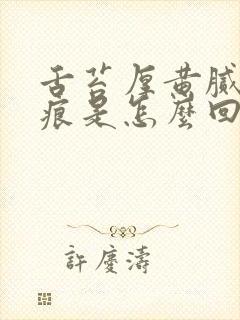 舌苔厚黄腻
痕是怎麽回
許慶濤